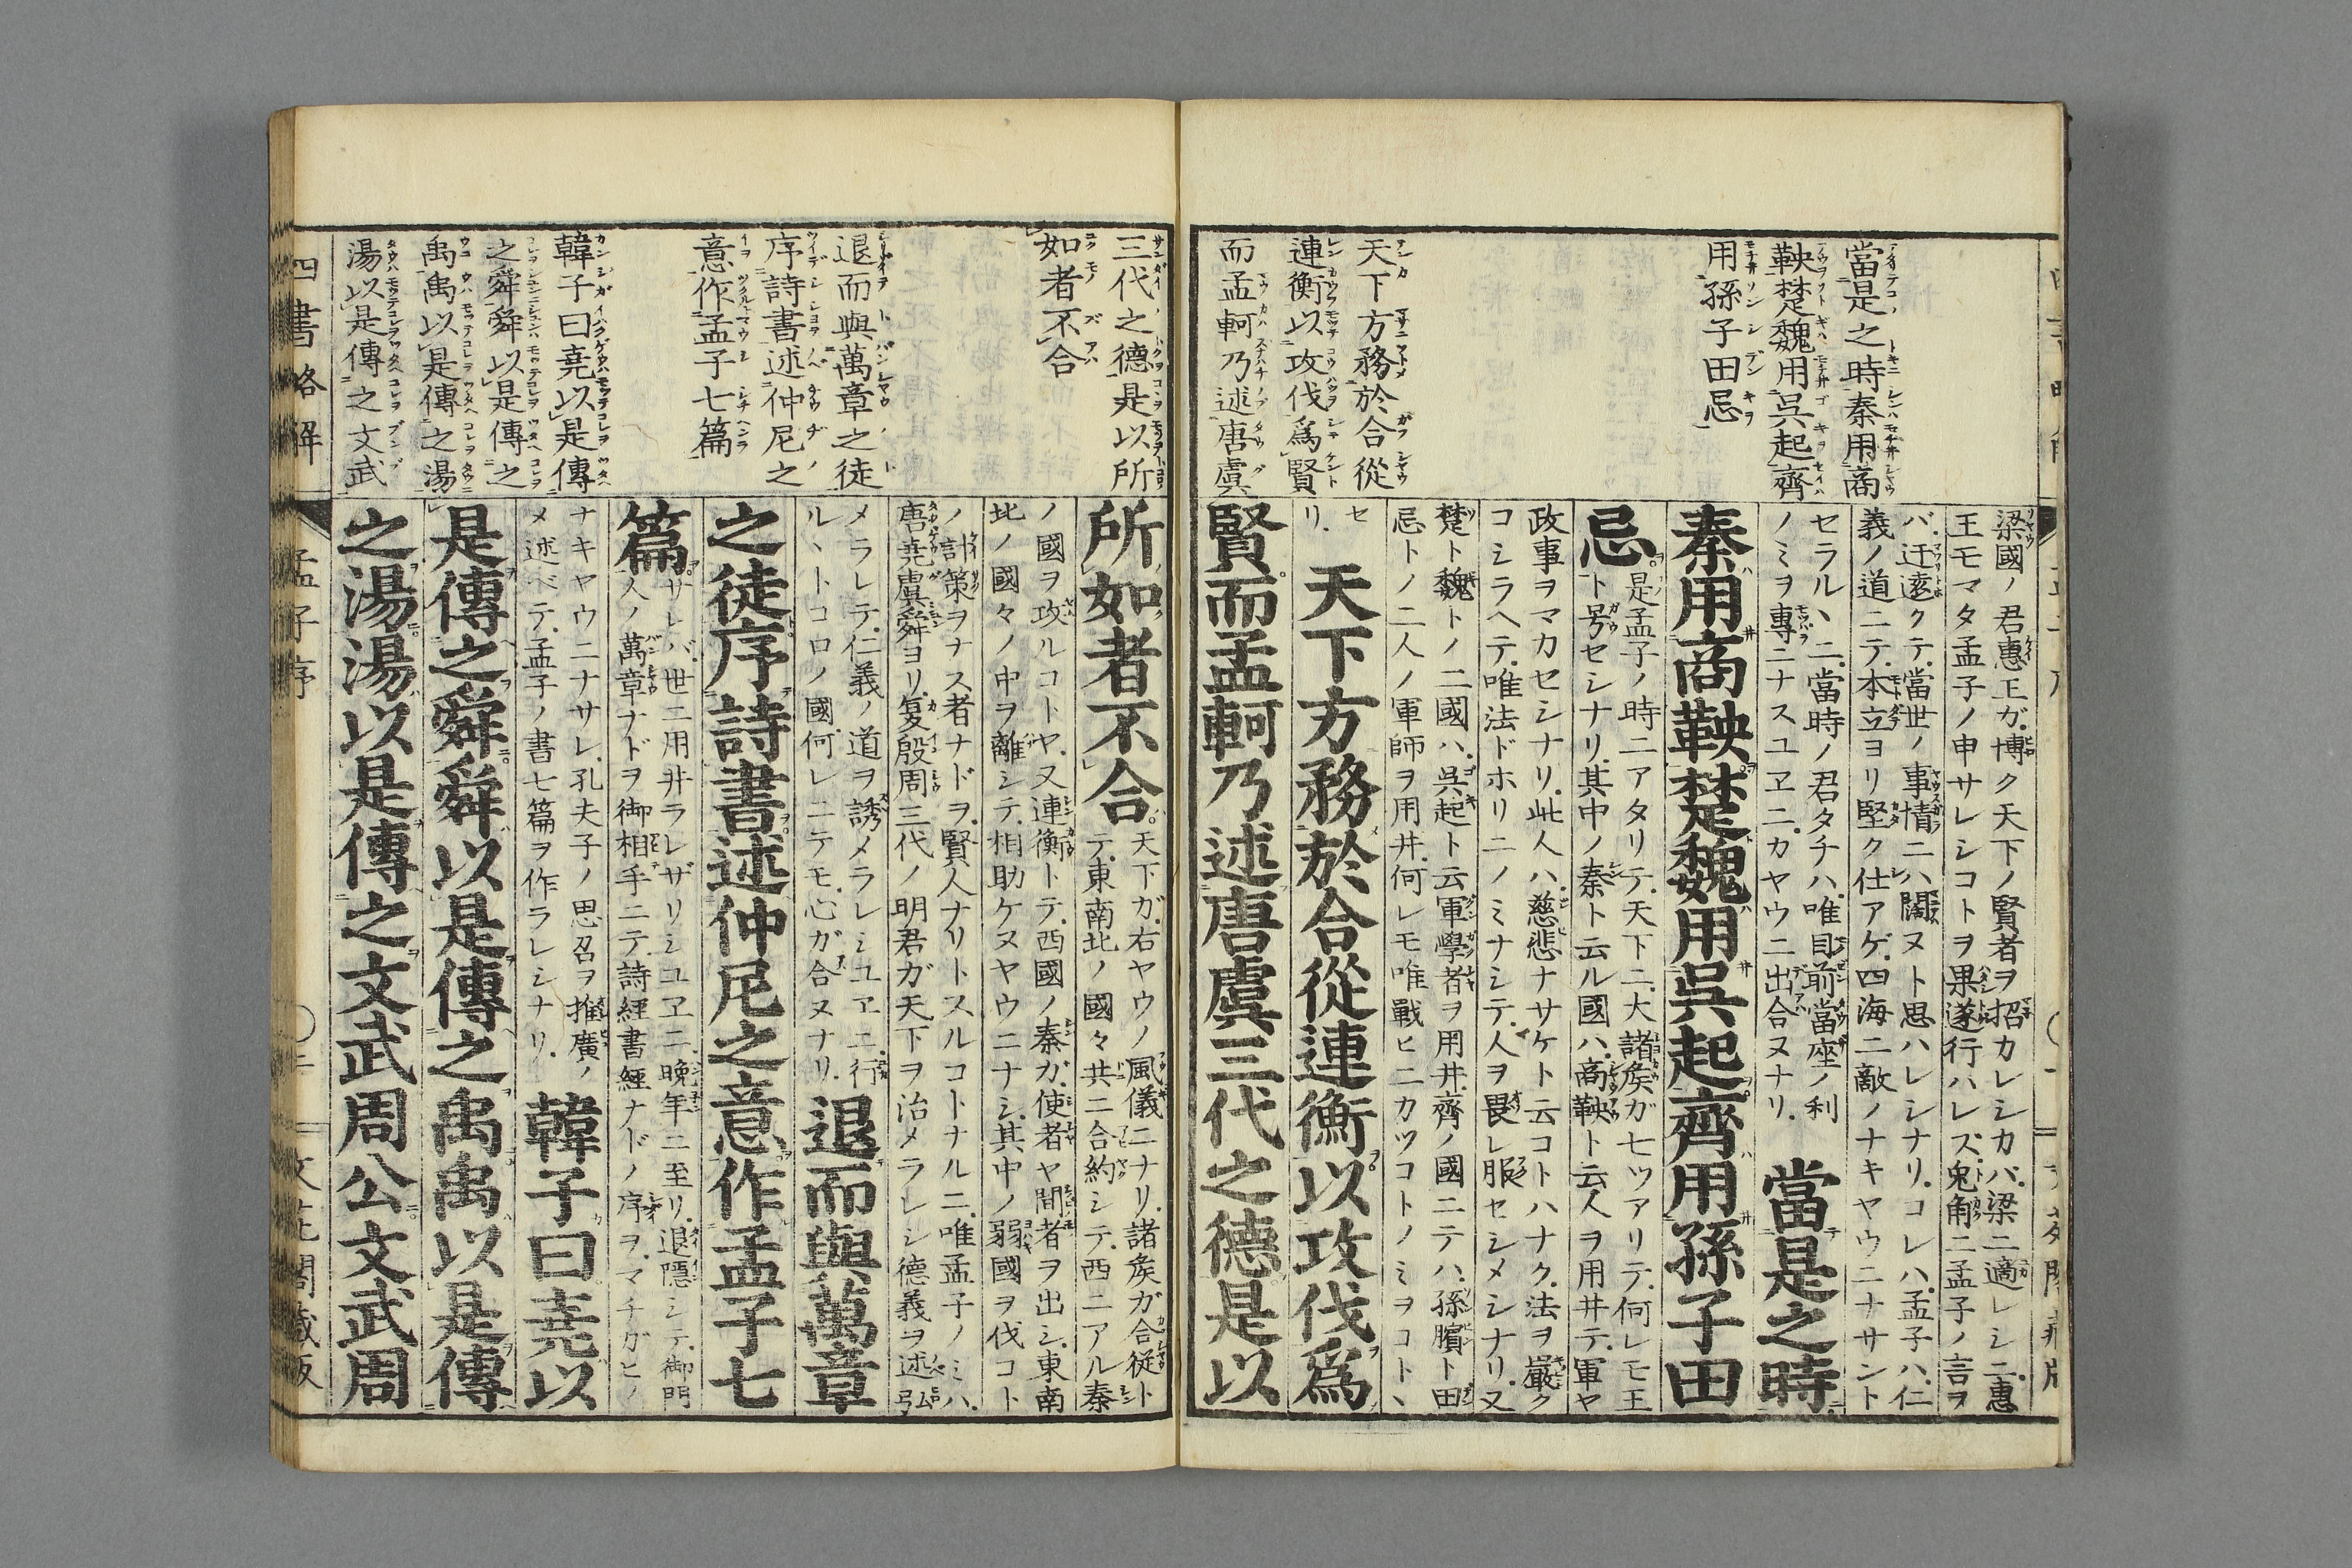 當是之時秦用商
鞅楚魏用呉起齊
用孫子田忌
天下方務於合從
連衡以攻伐爲賢
而孟軻乃述唐虞
梁國ノ君惠王ガ博ク天下ノ賢者ヲ招カレシカバ梁ニ適レシニ惠
王モマタ孟子ノ申サレシコトヲ果遂行ハレズ兎角ニ孟子ノ言ヲ
バ迂遠クテ當世ノ事情ニハ闊ヌト思ハレシナリコレハ孟子ハ仁
義ノ道ニテ本立ヨリ堅ク仕アゲ四海ニ敵ノナキヤウニナサント
セラルヽニ當時ノ君タチハ唯目前當座ノ利
ノミヲ專ニナスユヱニカヤウニ出合ヌナリ
當是之時
秦用商鞅楚魏用呉起齊用孫子田
忌
是孟子ノ時ニアタリテ天下ニ大諸矦ガ七ツアリテ何レモ王
ト号セシナリ其中ノ秦ト云ル國ハ商鞅ト云人ヲ用井テ軍ヤ
政事ヲマカセシナリ此人ハ慈悲ナサケト云コトハナク法ヲ嚴ク
コシラヘテ唯法ドホリニノミナシテ人ヲ畏レ服セシメシナリ又
楚ト魏トノ二國ハ呉起ト云軍學者ヲ用井齊ノ國ニテハ孫臏ト田
忌トノ二人ノ軍師ヲ用井何レモ唯戰ヒニカツコトノミヲコトヽ
セ
リ
天下方務於合從連衡以攻伐爲
賢而孟軻乃述唐虞三代之德是以
三代之德是以所
如者不合
退而與萬章之徒
序詩書述仲尼之
意作孟子七篇
韓子曰堯以是傳
之舜舜以是傳之
禹禹以是傳之湯
湯以是傳之文武
所如者不合
天下ガ右ヤウノ風儀ニナリ諸矦ガ合従ト
テ東南北ノ國々共ニ合約シテ西ニアル秦
ノ國ヲ攻ルコトヤ又連衡トテ西國ノ秦カ使者ヤ間者ヲ出シ東南
北ノ國々ノ中ヲ離シテ相助ケヌヤウニナシ其中ノ弱國ヲ伐コト
ノ計策ヲナス者ナドヲ賢人ナリトスルコトナルニ唯孟子ノミハ
唐堯虞舜ヨリ夏殷周三代ノ明君ガ天下ヲ治メラレシ德義ヲ述弘
メラレテ仁義ノ道ヲ誘メラレシユヱニ行
ルヽトコロノ國何レニテモ心ガ合ヌナリ
退而與萬章
之徒序詩書述仲尼之意作孟子七
篇
サレバ世ニ用井ラレザリシユヱニ晩年ニ至リ退隱シテ御門
人ノ萬章ナドヲ御相手ニテ詩經書經ナドノ序ヲマチガヒノ
ナキヤウニナサレ孔夫子ノ思召ヲ推廣ノ
メ述ベテ孟子ノ書七篇ヲ作ラレシナリ
韓子曰堯以
是傳之舜舜以是傳之禹禹以是傳
之湯湯以是傳之文武周公文武周
四書略解
孟子序